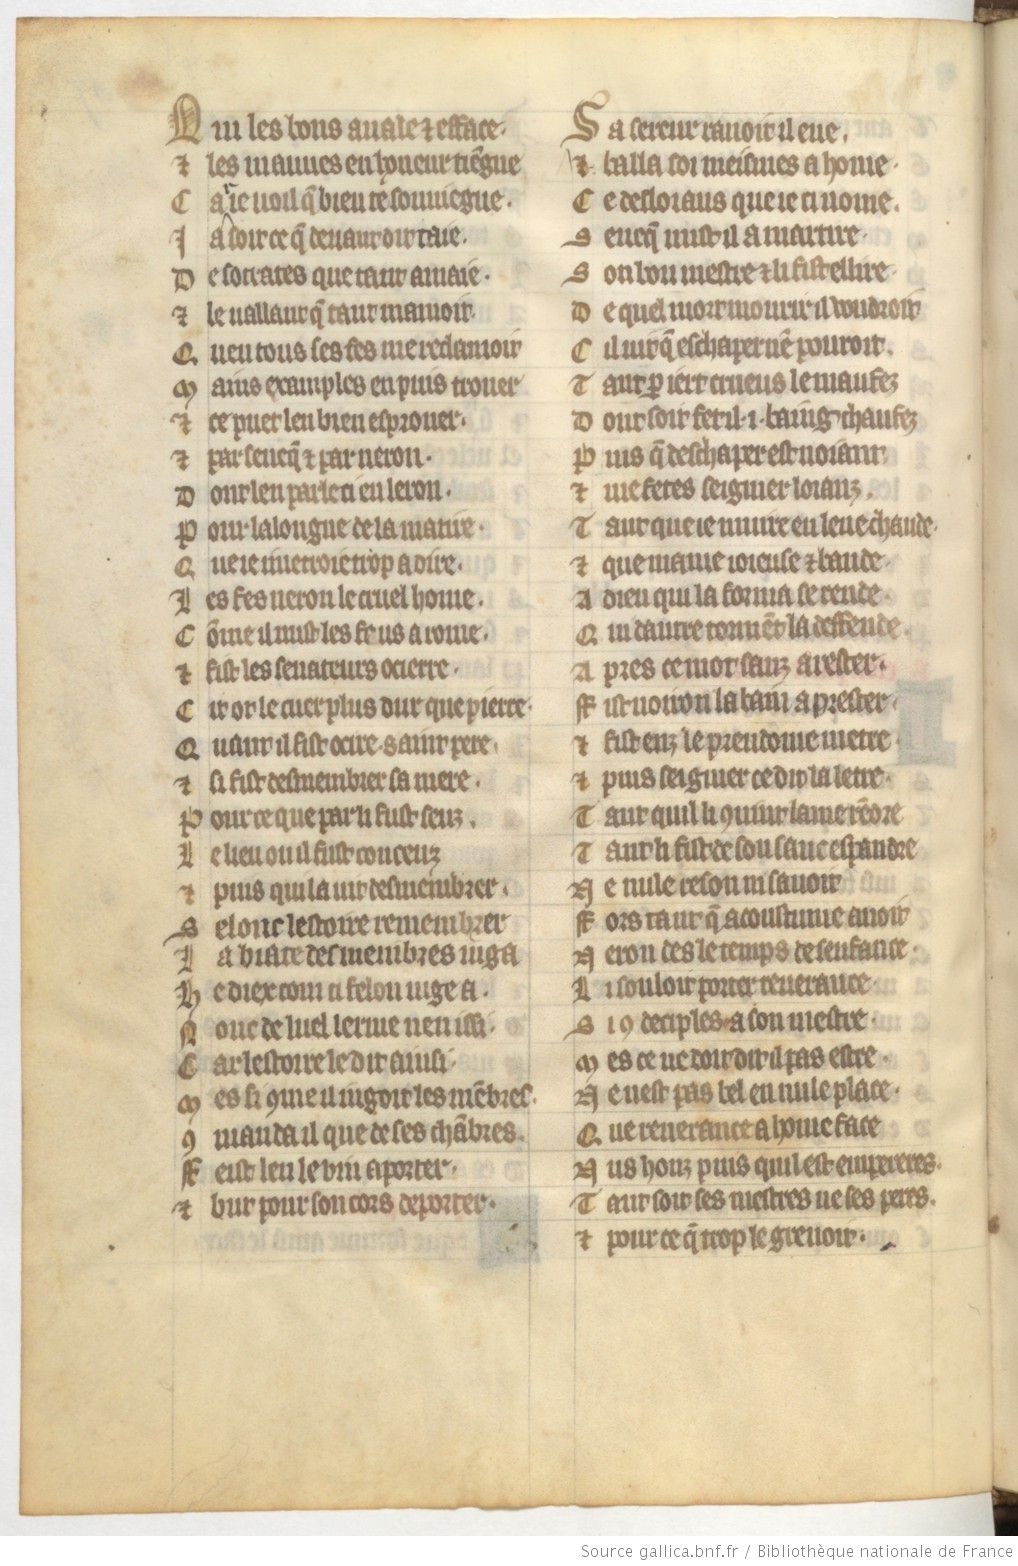 Qui les bons auale ⁊ efface·
⁊ les mauues en honeur tiēgne
Car ie uoil q̄ bien te souuiegne·
Ja soit ce q̄ deuant dit taie·
De socrates que tant amaie·
⁊ le uallant q̄ tant mamoit
Quen tous ses fes me reclamoit
Mains examples en puis trouer
⁊ ce puet len bien esprouer·
⁊ par seneq̄ ⁊ par neron·
Dont len parle ci en leron·
Pour la longue de la matire·
Que ie metroie trop a dire·
Les fes neron le cruel home·
Cōme il mist les feus a rome·
⁊ fist les senateurs ocierre·
Cit ot le cuer plus dur que pierre·
Quant il fist ocire saint pere·
⁊ si fist desmembrer sa mere·
Pour ce que par li fust seuz·
Le lieu ou il fust conceuz
⁊ puis qui la uit desmembrer·
Selonc lestoire remembrer
La biate des membres iuga
He diex com ci felon iuge a·
Onc de luel lerme nen issi·
Car lestoire le dit ainsi·
Mes si ꝯme il iugoit les mēbres·
ꝯmanda il que de ses chābres·
Feist len le vin aporter·
⁊ but pour son cors deporter·
Sa sereur rauoit il eue·
⁊ balla soi meismes a home·
Ce desloiaus que ie ci nome·
Seneq̄ mist il a martire·
Son bon mestre ⁊ li fist ellire·
De quel mort mourir il voudroit
Cil uit q̄ eschaper nē pouroit·
Tant ꝑ iert crueus le maufez
Dont soit fet il ·i· baing chaufez
Puis q̄ deschaper est noiant
⁊ me feres seignier loianz·
Tant que ie muire en leue chaude·
⁊ que mame ioieuse ⁊ baude·
A dieu qui la forma se rende·
Qui dautre tormēt la deffende·
Apres ce mot sanz arester·
Fist noiron la bain aprester·
⁊ fist enz le preudome metre·
⁊ puis seignier ce dit la letre·
Tant quil li ꝯuint lame rēdre
Tant li fist de son sanc espandre
Ne nule reson ni sauoit
Fors tant q̄ acoustume auoit
Neron des le temps de senfance·
Li souloit porter reuerance·
Si ꝯ deciples a son mestre·
Mes ce ne doit dit il pas estre·
Ne nest pas bel en nule place·
Que reuerance a home face
Nus hons puis quil est empereres·
Tant soit ses mestres ne ses peres·
⁊ pour ce q̄ trop le greuoit·
Source gallica.bnf.fr / Bibliothèque nationale de France